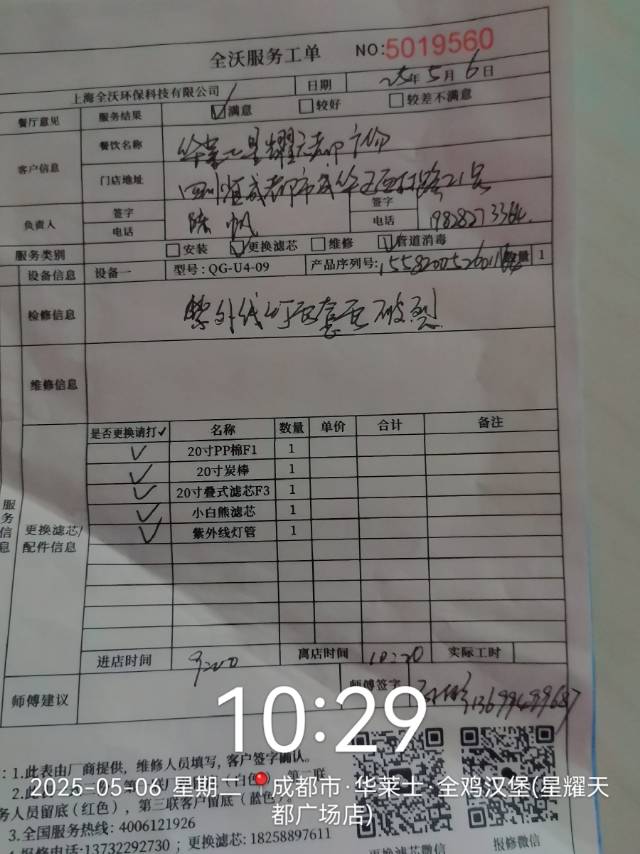 全沃服务工单 NO:5019560
上海全沃环保科技有限公司 日期 25年5月6日
餐厅意见 服务结果 ☑满意 □较好 □较差不满意
客户信息 餐饮名称 华莱士星耀天都
门店地址 四川省成都市
负责人 签字 陈帆 签字
电话 电话
服务类别 □安装 ☑更换滤芯 □维修 ☑管道消毒
设备信息 设备一 型号:QG-U4-09 产品序列号: 数量 1
检修信息 紫外线灯 套 破裂
维修信息
是否更换请打✓ 名称 数量 单价 合计 备注
✓ 20寸PP棉F1 1
✓ 20寸炭棒 1
✓ 20寸叠式滤芯F3 1
✓ 小白熊滤芯 1
✓ 紫外线灯管 1
服务信息
更换滤芯/
配件信息
进店时间 离店时间 10:20 实际工时
师傅建议 师傅签字
10:29
:1.此表由厂商提供，维修人员填写，客户签字确认。
2025-05-06 星期二 成都市·华莱士·全鸡汉堡(星耀天
都广场店)
务人员留底（红色），第三联客户留底（蓝色）。
3.全国服务热线: 4006121926
报修电话:13732292730 ; 更换滤芯: 18258897611
更换滤芯微信 报修微信